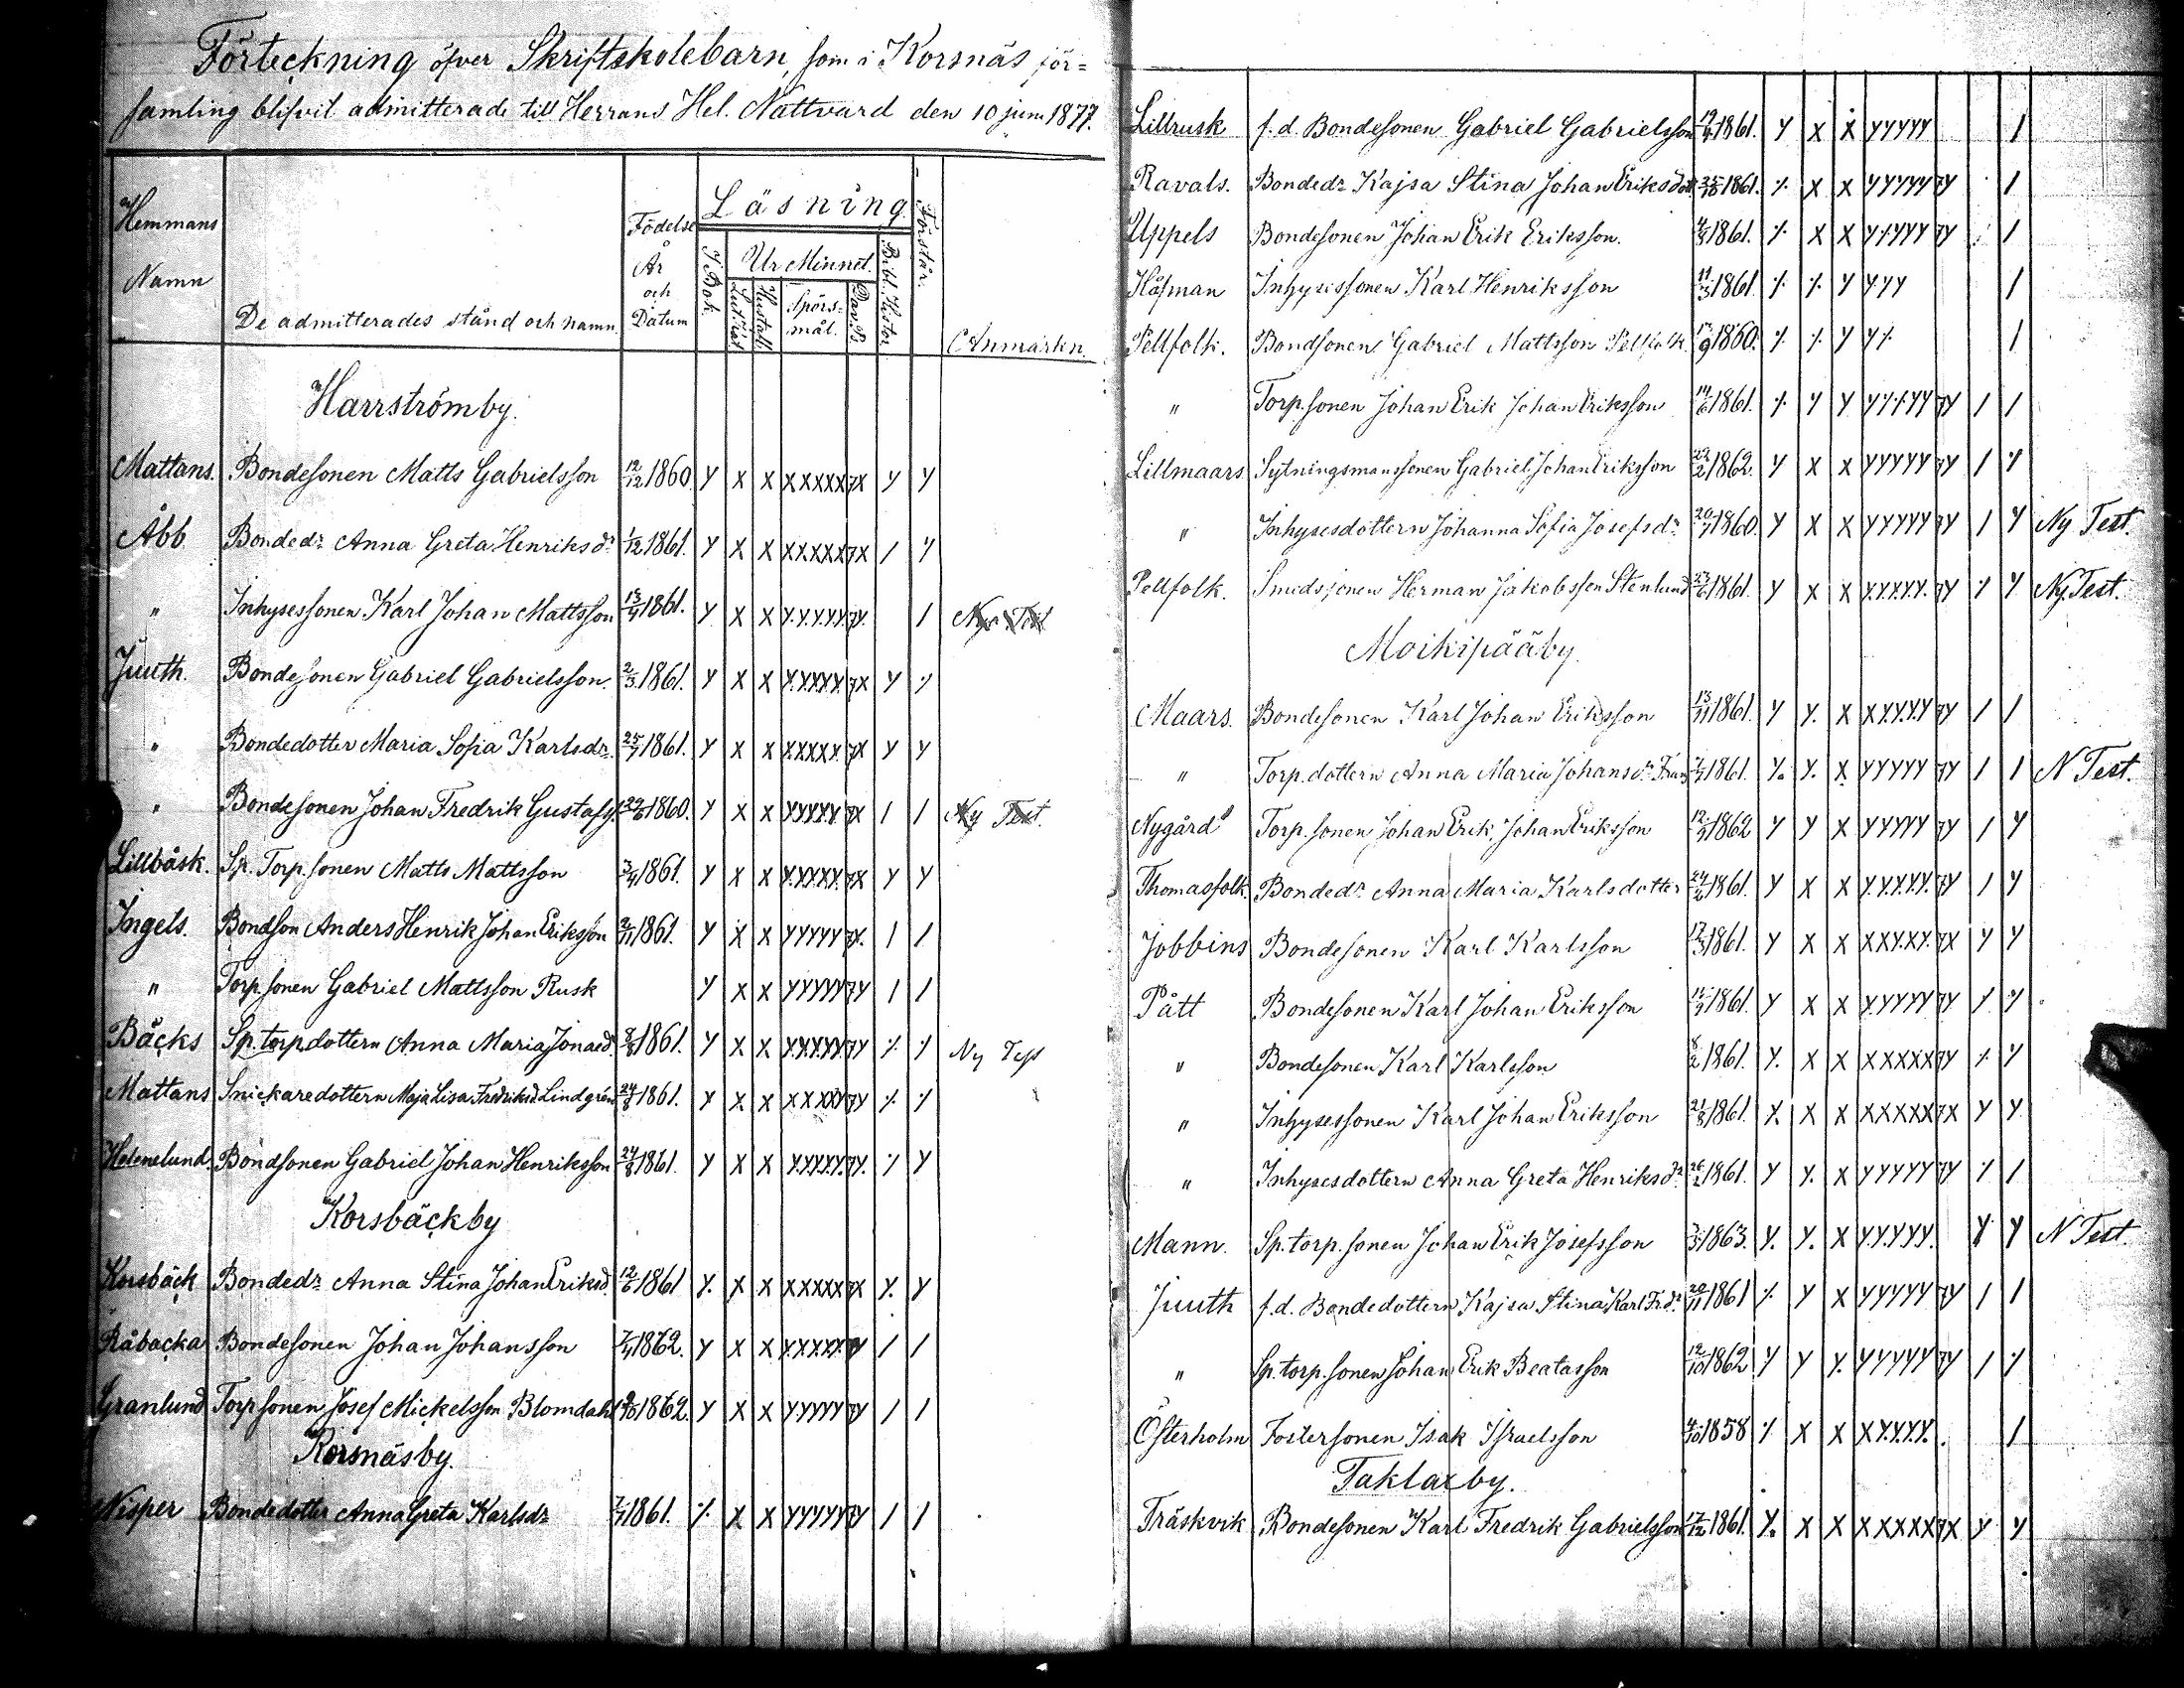 Förteckning öfver Skriftskolebarn, som i Korsnäs för=
samling blifvit admitterade till Herrans Hel. Nattvard den 10 juni 1877.
Hemmans Namn De admitterades stånd och namn. Födelse År och Datum Läsning Förstår. Anmärkn.
I. Bok. Ur Minnet. Bibl. Histor.
Lut. Kat. Hustafl. Spörs-mål. Dav. P.
Harrströmby.
Mattans. Bondesonen Matts Gabrielsson 12/12 1860. Y X X XXXXX 7X Y Y
Åbb Bondedr Anna Greta Henriksdr 1/12 1861. Y X X XXXXX 7X / Y
" Inhysessonen Karl Johan Mattsson 13/4 1861. Y X X Y.Y.Y.Y.Y. 7Y. /
Juuth. Bondesonen Gabriel Gabrielsson. 2/3 1861. Y X X Y.XXXY. 7X Y ٪
" Bondedotter Maria Sofia Karlsdr. 25/7 1861. Y X X XXXXX 7X Y Y
" Bondesonen Johan Fredrik Gustafss. 1860. Y X X YYYYY. 7X / / Ny Test.
Lillbåsk. Sp. Torp. sonen Matts Mattsson 3/4 1861. Y X X Y.XXXY. 7X Y Y
Ingels. Bondson Anders Henrik Johan Eriksson 2/11 1861. Y X X YYYYY 7Y. / /
" Torp. sonen Gabriel Mattsson Rusk Y X X YYYYY 7Y / /
Bäcks Sp. torp. dottern Anna Maria Jonaed. 8/8 1861. Y X X Y.XXYY 7Y ٪ ٪ Ny Test
Mattans Snickaredottern Maja Lisa Fredriksd. Lindgrén 24/8 1861. Y X X XXXYY 7Y ٪ ٪
Helenelund. Bondsonen Gabriel Johan Henriksson 24/8 1861. Y X X Y.XXXY. 7Y. ٪ Y
Korsbäckby
Korsbäck Bondedr Anna Stina Johan Eriksd. 12/6 1861 Y. X X XXXXX 7X Y. Y
Råbacka Bondesonen Johan Johansson 7/4 1862. Y X X YXXXY. 7Y / /
Granlund Torpsonen Josef Mickelsson Blomdahl 1862. Y X X YYYYY 7Y / /
Korsnäsby.
Nisper Bondedotter Anna Greta Karlsdr 7/4 1861. ٪ X X YYYYY 7Y / /
Lillrusk f. d. Bondesonen Gabriel Gabrielsson 1861. Y X X YYYYY /
Ravals. Bondedr Kajsa Stina Johan Eriksdott. 25/10 1861. ٪ X X YYYYY 7Y /
Uppels Bondesonen Johan Erik Eriksson. 1861. ٪ X X Y٪YYY 7Y /
Håfman Inhysessonen Karl Henriksson 11/3 1861. ٪ ٪ Y YYY /
Pellfolk. Bondsonen Gabriel Mattsson Pellfolk. 1860. ٪ ٪ Y Y٪ /
" Torp. sonen Johan Erik Johan Eriksson 14/6 1861. ٪ Y Y Y٪٪YY 7Y / /
Lillmaars Sytningsmanssonen Gabriel Johan Eriksson 22/2 1862. Y X X YYYYY 7Y / Y
" Inhysesdottern Johanna Sofia Josefsdr. 20/7 1860. Y X X YYYYY 7Y / Y Ny Test.
Pellfolk. Smedssonen Herman Jakobsson Stenlund 1861. Y X X Y.Y.Y.Y.Y. 7Y ٪ Y Ny. Test.
Moikipääby.
Maars. Bondesonen Karl Johan Eriksson 13/11 1861. Y Y. X XY.Y.Y.Y 7Y / /
" Torp. dottern Anna Maria Johansdr. 1861. Y. Y. X YYYYY 7Y / / N Test.
Nygård Torp. sonen Johan Erik Johan Eriksson 1862 Y Y X YYYYY 7Y / Y
Thomasfolk. Bondedr Anna Maria Karlsdotter 24/2 1861. Y X X Y.Y.Y.Y.Y. 7Y / Y
Jobbins Bondesonen Karl Karlsson 17/3 1861. Y X X XXY.XY. 7X Y Y
Pått Bondesonen Karl Johan Eriksson 1861. Y X X Y.YYYY 7Y ٪ ٪
" Bondesonen Karl Karlsson 8/2 1861. Y. X X XXXXX 7Y ٪ Y
" Inhysessonen Karl Johan Eriksson 21/8 1861. Y. X X XXXXX 7X Y Y
" Inhysesdottern Anna Greta Henriksdr. 26/2 1861. Y Y. X YYYYY 7Y ٪ /
Mann. Sp. torp. sonen Johan Erik Josefsson 3/3 1863. Y. Y. X Y.Y.Y.YY. Y Y N Test.
Juuth f. d. Bondedottern Kajsa Stina Karl Frdr 20/11 1861 ٪ Y X YYYYY 7Y / /
" Sp. torp. sonen Johan Erik Beatasson 12/10 1862 Y Y Y. YYYYY 7Y / Y
Österholm Fostersonen Isak Israelsson 4/10 1858 ٪ X X XY.Y.Y.Y. /
Taklaxby.
Träskvik Bondesonen Karl Fredrik Gabrielsson 17/12 1861. Y. X X XXXXX 7X Y Y